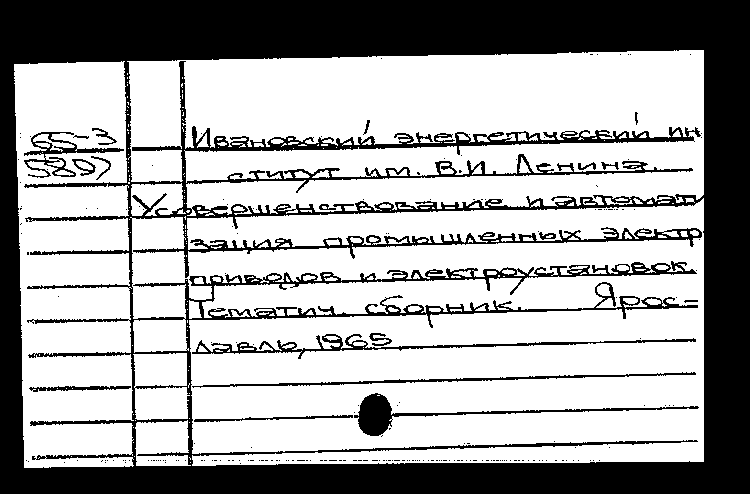 65-3 Ивановский энергетический ин
5807 ститут им. В.И. Ленина.
Усовершенствование и автомати
зация промышленных электро
приводов и электроустановок.
Тематич. сборник. Ярос=
лавль, 1965